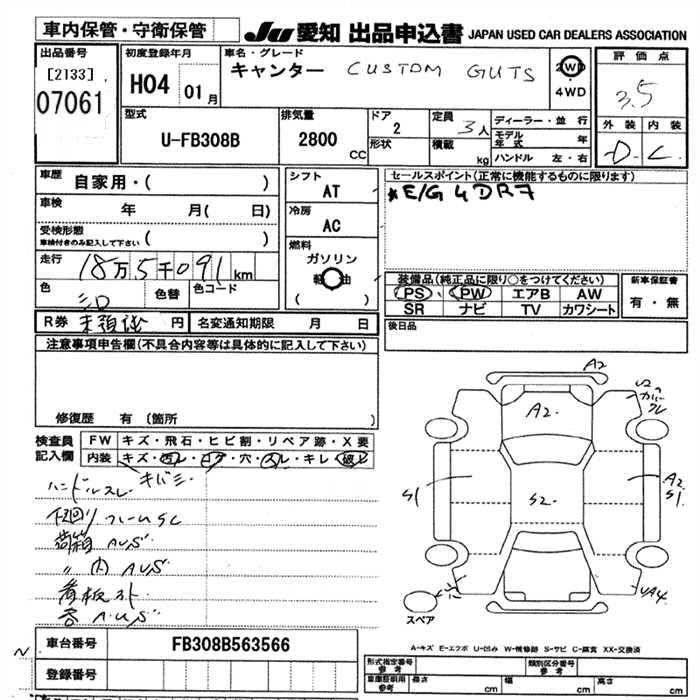 車内保管・守衛保管
JU 愛知 出品申込書 JAPAN USED CAR DEALERS ASSOCIATION
出品番号
[2133]
07061
初度登録年月
H04 01月
車名・グレード
キャンター CUSTOM GUTS
2WD
4WD
評価点
3.5
外装 内装
D C
型式
U-FB308B
排気量
2800 CC
ドア
2
形状
定員
3人
積載
kg
ディーラー・並行
モデル年式 年
ハンドル 左・右
車歴 自家用・( )
車検 年 月( 日)
受検形態
車検付きのみ記入して下さい ( )
走行 18万5千091km
色 シロ 色替 色コード
シフト
AT
冷房
AC
燃料
ガソリン
軽油
( )
セールスポイント(正常に機能するものに限ります)
*E/G 4DR7
装備品(純正品に限り○をつけてください)
PS、PW エアB AW
SR ナビ TV カワシート
新車保証書
有・無
後日品
R券 未預託 円 名変通知期限 月 日
注意事項申告欄(不具合内容等は具体的に記入して下さい)
修復歴 有 (箇所 )
検査員
記入欄
FW キズ・飛石・ヒビ割・リペア跡・X要
内装 キズ・凹レ・コゲ・穴・スレ・キレ・破レ
キバミ
ハンドルスレ
下回りフレームSC
荷箱 AUS
〃 内 AUS
看板
AUS
A2
A2
S1
S2
A2
S1
U2
UA4
スペア
車台番号 FB308B563566
登録番号
A-キズ E-エクボ U-凹み W-補修跡 S-サビ C-腐食 XX-交換済
形式指定番号
参考
類別区分番号
参考
車庫証明用
参考
長さ cm 幅 cm 高さ cm
N